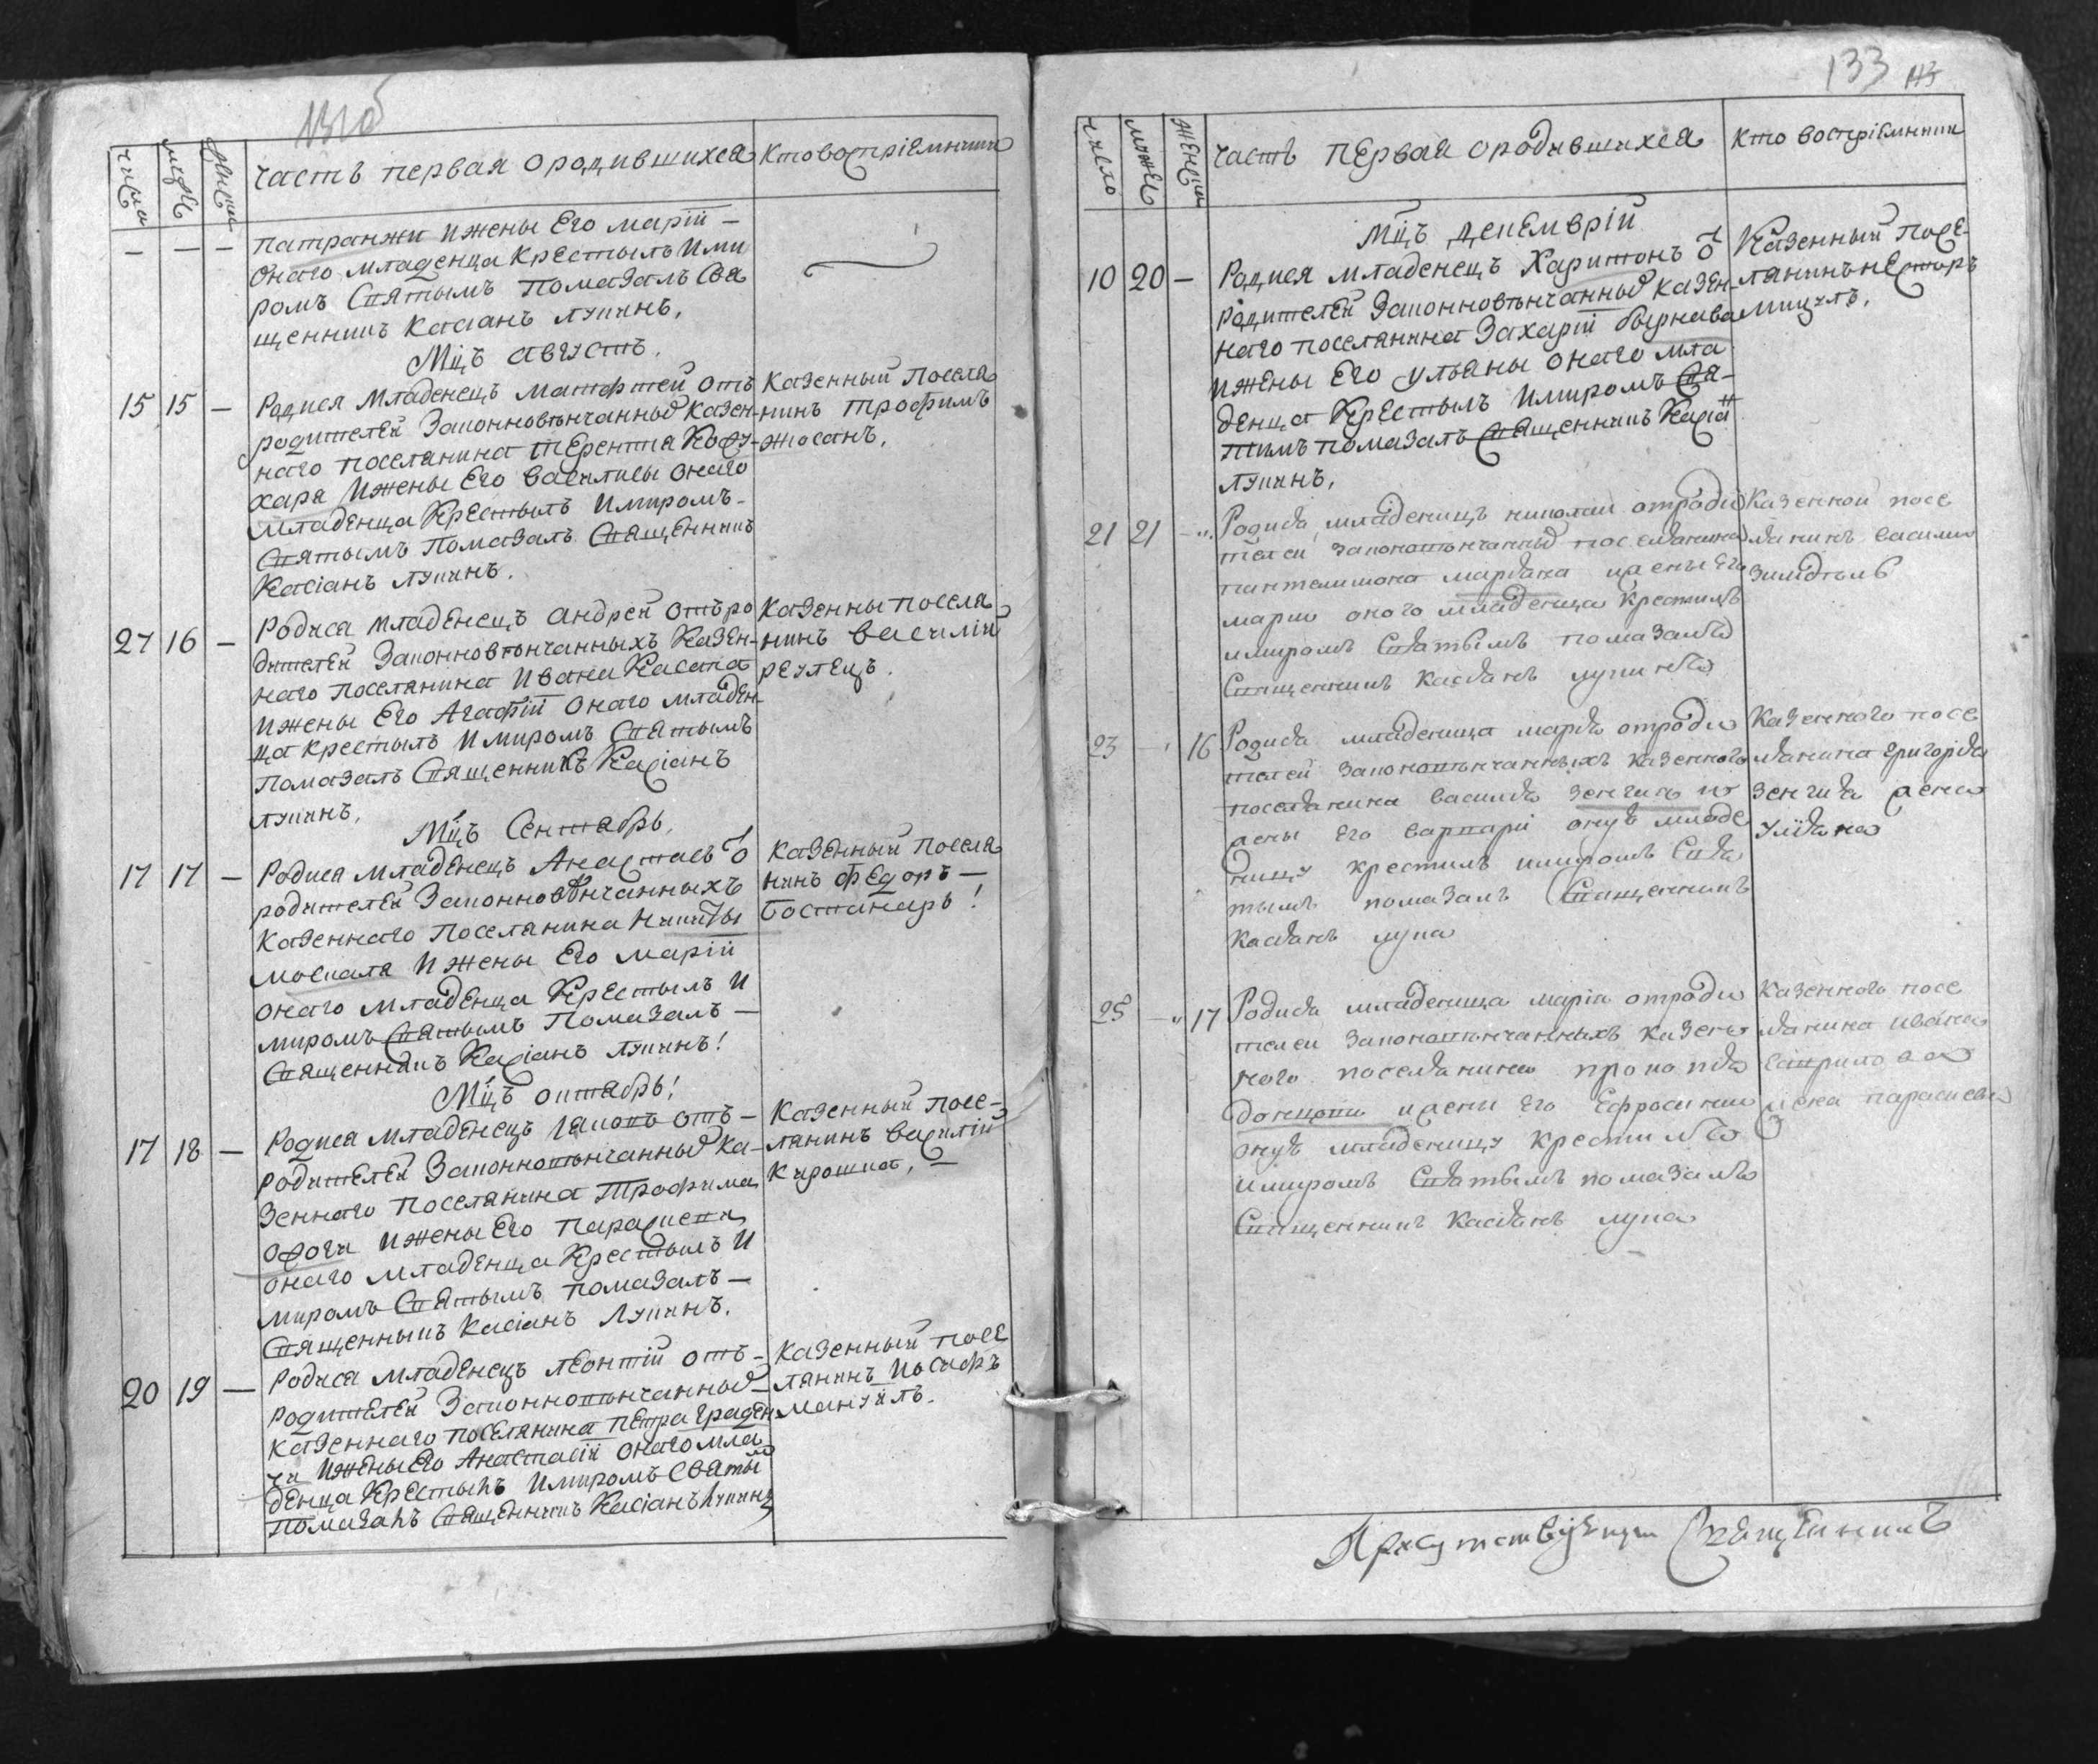 числа мужес женска Часть первая о родившихся Кто воспріемники
— — — патранжи и жены его маріи —
онаго младенца крестилъ и ми
ромъ святымъ помазалъ свя
щенникъ касианъ лупинъ.
Мцъ августъ.
15 15 — Родися младенецъ матфтей отъ
родителей законновѣнчанныхъ казен-
наго поселянина терентия
хара и жены его василисы онаго
младенца крестилъ и миромъ-
святымъ помазалъ священникъ
касіанъ лупинъ.
казенный поселя
нинъ трофимъ
жосанъ.
27 16 — Родися младенецъ андрей отъ ро
дителей законновѣнчанныхъ казен-
наго поселянина ивана касапа
и жены его агафіи онаго младен-
ца крестилъ и миромъ святымъ
помазалъ священникъ касіанъ
лупинъ.
казенны поселя
нинъ василій
реулецъ.
Мцъ Сентябрь.
17 17 — Родися младенецъ Анастасъ о
родителей законновѣнчанныхъ
казеннаго поселянина никиты
москаля и жены его маріи
онаго младенца крестилъ и
миромъ святымъ помазалъ —
священникъ касіанъ лупинъ!
казенный поселя
нинъ федоръ —
бостанарь!
Мцъ октябрь!
17 18 — Родися младенецъ іаковъ отъ —
родителей законновѣнчанныхъ ка-
зеннаго поселянина трофима
и жены его параскеви
онаго младенца крестилъ и
миромъ святымъ помазалъ —
священникъ касіанъ лупинъ.
казенный посе-
лянинъ василій
кирошка, —
20 19 — Родися младенецъ леонтій отъ —
родителей законновѣнчанныхъ
казеннаго поселянина петра граден
чи и жены его Анастасіи онаго мла
денца крестилъ и миромъ святы
помазалъ священникъ касіанъ лупинъ
казенный посе
лянинъ иосифъ
мануилъ.
133
число мужес женска Часть первая о родившихся Кто воспріемники
Мцъ декемврій
10 20 — Родися младенецъ Харитонъ о
родителей законновѣнчанныхъ казен-
наго поселянина захарій бырнава
и жены его ульяны онаго мла
денца крестилъ и миромъ свя-
тимъ помазалъ священникъ касіа
лупинъ.
казенный посе-
лянинъ несторъ
мицулъ.
21 21 — Родися младеницъ николаи отроди
телеи законовѣнчанныхъ поселянина
пантелимона мардана и жены его
марии оного младеница крестилъ
и миромъ святымъ помазалъ
священникъ касіанъ лупинъ
казенной посе
лянинъ василии
23 — 16 Родися младеница марія отроди
телей законовѣнчанныхъ казенного
поселянина василія зенчига и
жены его варвари онуя младе
ницу крестилъ и миромъ свя
тымъ помазалъ священникъ
касіанъ лупа
казенного посе
лянина григорія
зенчига жена
уліяна
25 — 17 Родися младеница марія отроди
телеи законовѣнчанныхъ казен
ного поселянина прокопія
донцови и жены его ефросинии
онуя младеницу крестилъ
и миромъ святымъ помазалъ
священникъ касіанъ лупа
казенного посе
лянина ивана
жена параскева
Присутствующи Священникъ